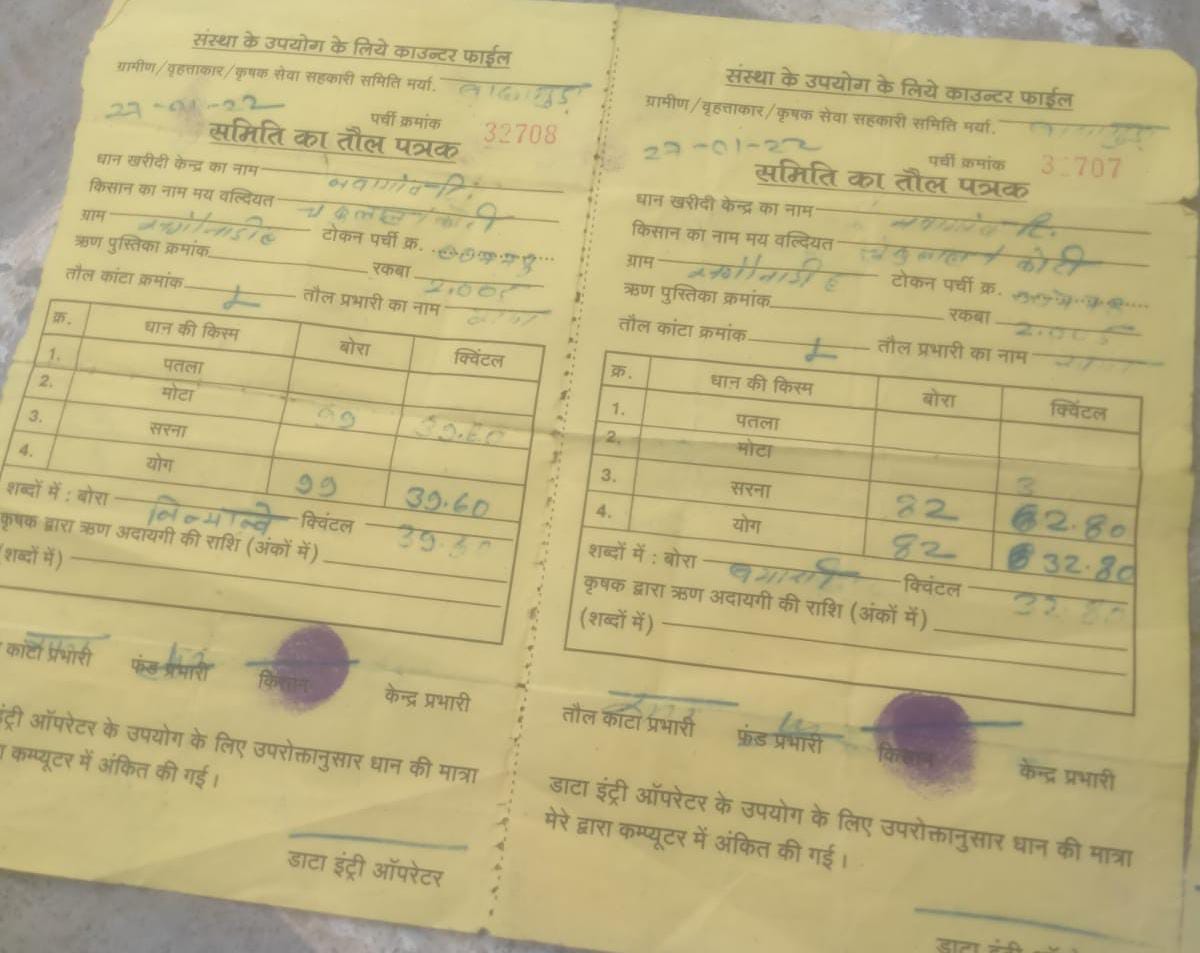 संस्था के उपयोग के लिये काउन्टर फाईल
ग्रामीण/वृहत्ताकार/कृषक सेवा सहकारी समिति मर्या.
27-01-22 पर्ची क्रमांक 32708
समिति का तौल पत्रक
धान खरीदी केन्द्र का नाम
किसान का नाम मय वल्दियत
ग्राम टोकन पर्ची क्र.
ऋण पुस्तिका क्रमांक रकबा
तौल कांटा क्रमांक तौल प्रभारी का नाम
क्र. धान की किस्म बोरा क्विंटल
1. पतला
2. मोटा 99 39.60
3. सरना
4. योग 99 39.60
शब्दों में : बोरा क्विंटल 39.60
कृषक द्वारा ऋण अदायगी की राशि (अंकों में)
(शब्दों में)
कांटा प्रभारी फंड प्रभारी किसान केन्द्र प्रभारी
इंट्री ऑपरेटर के उपयोग के लिए उपरोक्तानुसार धान की मात्रा
कम्प्यूटर में अंकित की गई।
डाटा इंट्री ऑपरेटर
संस्था के उपयोग के लिये काउन्टर फाईल
ग्रामीण/वृहत्ताकार/कृषक सेवा सहकारी समिति मर्या.
27-01-22 पर्ची क्रमांक 32707
समिति का तौल पत्रक
धान खरीदी केन्द्र का नाम
किसान का नाम मय वल्दियत
ग्राम टोकन पर्ची क्र.
ऋण पुस्तिका क्रमांक रकबा
तौल कांटा क्रमांक तौल प्रभारी का नाम
क्र. धान की किस्म बोरा क्विंटल
1. पतला
2. मोटा
3. सरना 82 32.80
4. योग 82 32.80
शब्दों में : बोरा क्विंटल
कृषक द्वारा ऋण अदायगी की राशि (अंकों में)
(शब्दों में)
तौल कांटा प्रभारी फंड प्रभारी किसान केन्द्र प्रभारी
डाटा इंट्री ऑपरेटर के उपयोग के लिए उपरोक्तानुसार धान की मात्रा
मेरे द्वारा कम्प्यूटर में अंकित की गई।
डाटा इंट्री